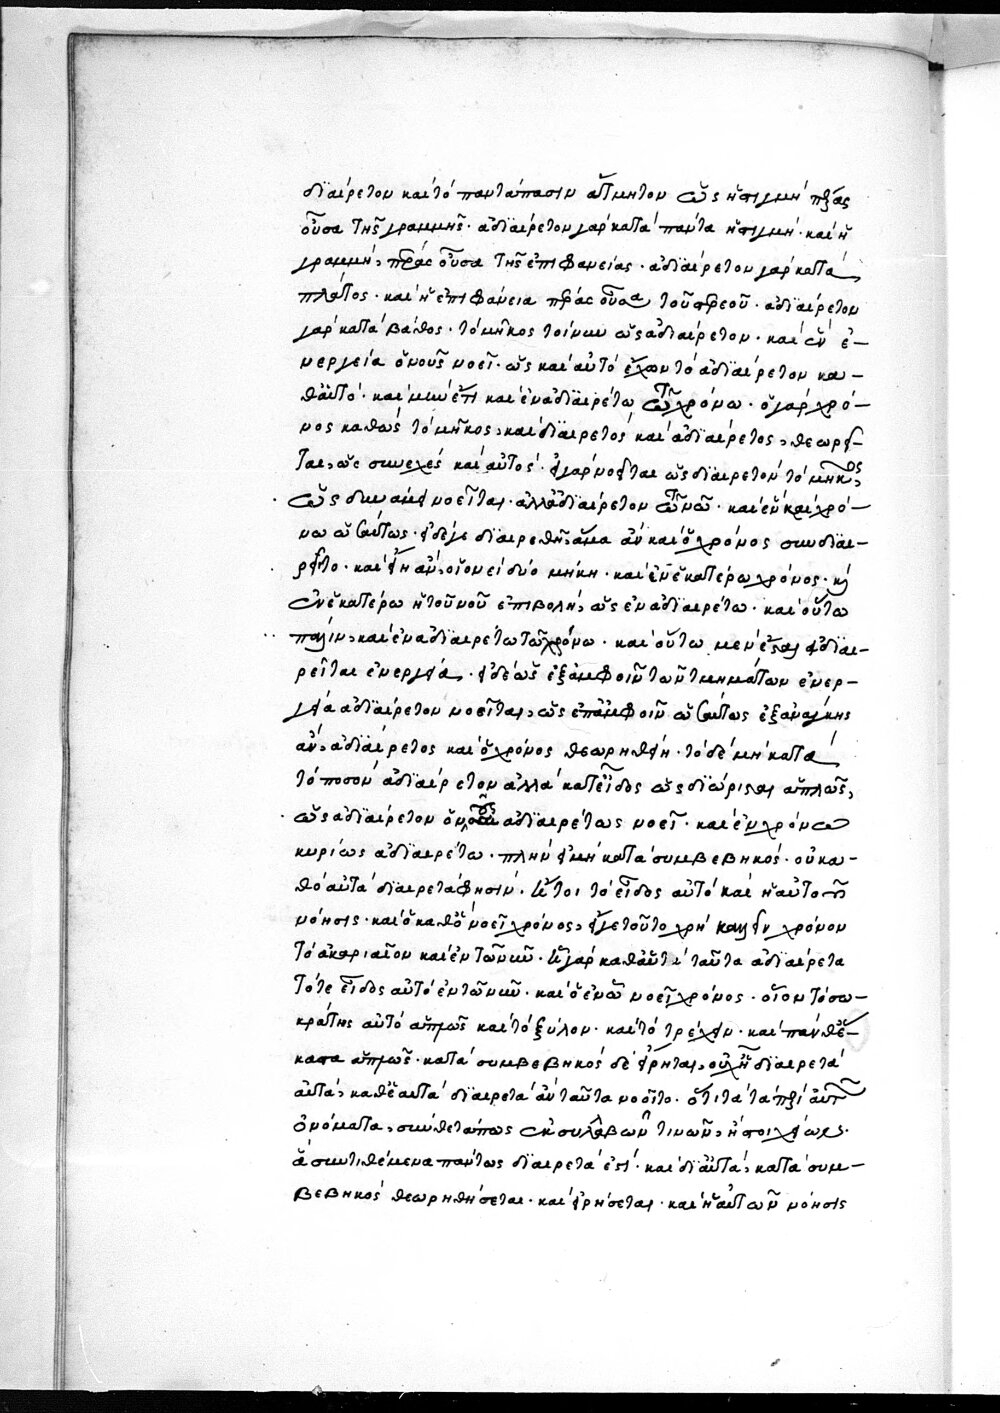 διαίρετον καὶ τὸ παντάπασιν ἄτμητον ὡς ἡ στιγμὴ πέρας
οὖσα τῆς γραμμῆς· ἀδιαίρετον γὰρ κατὰ πάντα ἡ στιγμή· καὶ ἡ
γραμμή, πέρας οὖσα τῆς ἐπιφανείας· ἀδιαίρετον γὰρ κατὰ
πλάτος· καὶ ἡ ἐπιφάνεια πέρας οὖσα τοῦ στερεοῦ· ἀδιαίρετον
γὰρ κατὰ βάθος· τὸ μῆκος τοίνυν ὡς ἀδιαίρετον· καὶ ἐν ἐ-
νεργεία ὁ νοῦς νοεῖ· ὡς καὶ αὐτὸ ἔχον τὸ ἀδιαίρετον κα-
θ' αὑτό· καὶ μὴν ἔτι καὶ ἐν ἀδιαιρέτω τῶ χρόνω· ὁ γὰρ χρό-
νος καθὼς τὸ μῆκος, καὶ διαιρετὸς καὶ ἀδιαίρετος, θεωρεῖ-
ται, ὡς συνεχὲς καὶ αὐτός· εἰ γὰρ νοεῖται ὡς διαιρετὸν τὸ μῆκος,
ὡς δυνάμει νοεῖται· ἀλλ' ἀδιαίρετον τῶ νῶ· καὶ ἐν καὶ χρό-
νω ὡσαύτως· εἰ δέ γε διαιρεθῆ, ἅμα ἂν καὶ ὁ χρόνος συνδιαι-
ροῖτο· καὶ εἴη ἂν, οἷον εἰ δύο μήκη· καὶ ἐν ἑκατέρω χρόνος· καὶ
ἐν ἑκατέρω ἡ τοῦ νοῦ ἐπιβολή, ὡς ἐν ἀδιαιρέτω· καὶ οὕτω
πάλιν, καὶ ἐν ἀδιαιρέτω τῶ χρόνω· καὶ οὕτω μὲν ἔσται εἰ διαι-
ρεῖται ἐνεργεία· εἰ δὲ ὡς ἐξ ἀμφοῖν τῶν τμημάτων ἐνερ-
γεία ἀδιαίρετον νοεῖται, ὡς ἐπ' ἀμφοῖν ὡσαύτως ἐξ ἀνάγκης
ἂν, ἀδιαίρετος καὶ ὁ χρόνος θεωρηθείη· τὸ δὲ μὴ κατὰ
τὸ ποσὸν ἀδιαίρετον ἀλλὰ κατ' εἶδος ὡς διώρισται ἁπλῶς,
ὡς ἀδιαίρετον ὁ νοῦς ἀδιαιρέτως νοεῖ· καὶ ἐν χρόνω
κυρίως ἀδιαιρέτω· πλὴν εἰ μὴ κατὰ συμβεβηκός· οὐ κα-
θὸ αὐτὰ διαιρετά φησιν· ἤτοι τὸ εἶδος αὐτὸ καὶ ἡ αὐτοῦ
νόησις· καὶ ὁ καθ' ὃν νοεῖ χρόνος, εἴγε τοῦτο χρὴ καλεῖν χρόνον
τὸ ἀκαριαῖον καὶ ἐν τῶ νῦν· εἰ γὰρ καθ' αὑτὰ ταῦτα ἀδιαίρετα
τότε εἶδος αὐτὸ ἐν τῶ νῦν· καὶ ὁ ἐν ὧ νοεῖ χρόνος· οἷον τὸ σω-
κράτης αὐτὸ ἁπλῶς καὶ τὸ ξύλον· καὶ τὸ τρέχειν· καὶ πάνθ' ἕ-
καστα ἁπλῶς· κατὰ συμβεβηκὸς δὲ εἴρηται, οὐχ ἧ διαιρετὰ
αὐτά, καθ' ἃ αὐτὰ διαιρετὰ ἂν ταῦτα νοοῖτο· ὅτι τὰ τὰ περὶ αὐτῶν
ὀνόματα, σύνθετά πως ἐκ συλλαβῶν τινῶν, ἢ στοιχείων·
ἃ συντιθέμενα πάντως διαιρετά ἐστι· καὶ δι' αὐτά, κατὰ συμ-
βεβηκὸς θεωρηθήσεται· καὶ εἰρήσεται· καὶ ἡ αὐτῶν νόησις